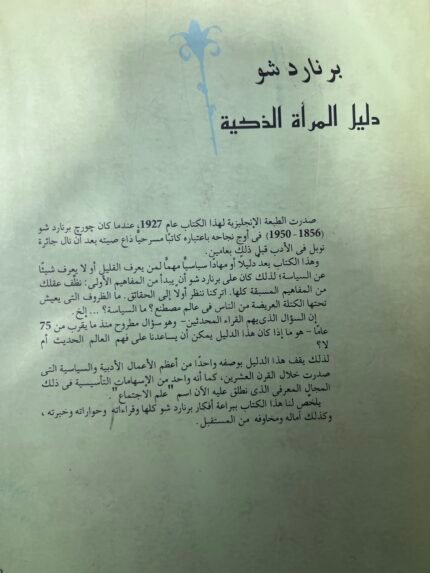 برنارد شو
دليل المرأة الذكية
صدرت الطبعة الإنجليزية لهذا الكتاب عام 1927، عندما كان چورچ برنارد شو
(1856 - 1950) فى أوج نجاحه باعتباره كاتبًا مسرحيًّا ذاع صيته بعد أن نال جائزة
نوبل فى الأدب قبل ذلك بعامين.
وهذا الكتاب يعد دليلاً أو مهادًا سياسيًّا مهمًّا لمن يعرف القليل أو لا يعرف شيئًا
عن السياسة؛ لذلك كان على برنارد شو أن يبدأ من المفاهيم الأولى: نظِّف عقلك
من المفاهيم المسبقة كلها. اتركنا ننظر أولا إلى الحقائق. ما الظروف التى يعيش
تحتها الكتلة العريضة من الناس فى عالم مصنع؟ ما السياسة؟ ... إلخ.
إن السؤال الذى يهم القراء المحدثين- وهو سؤال مطروح منذ ما يقرب من 75
عامًا – هو ما إذا كان هذا الدليل يمكن أن يساعدنا على فهم العالم الحديث أم
لا؟
لذلك يقف هذا الدليل بوصفه واحدًا من أعظم الأعمال الأدبية والسياسية التى
صدرت خلال القرن العشرين، كما أنه واحد من الإسهامات التأسيسية فى ذلك
المجال المعرفى الذى نطلق عليه الآن اسم "علم الاجتماع".
يلخص لنا هذا الكتاب ببراعة أفكار برنارد شو كلها وقراءاته وحواراته وخبرته ،
وكذلك آماله ومخاوفه من المستقبل.